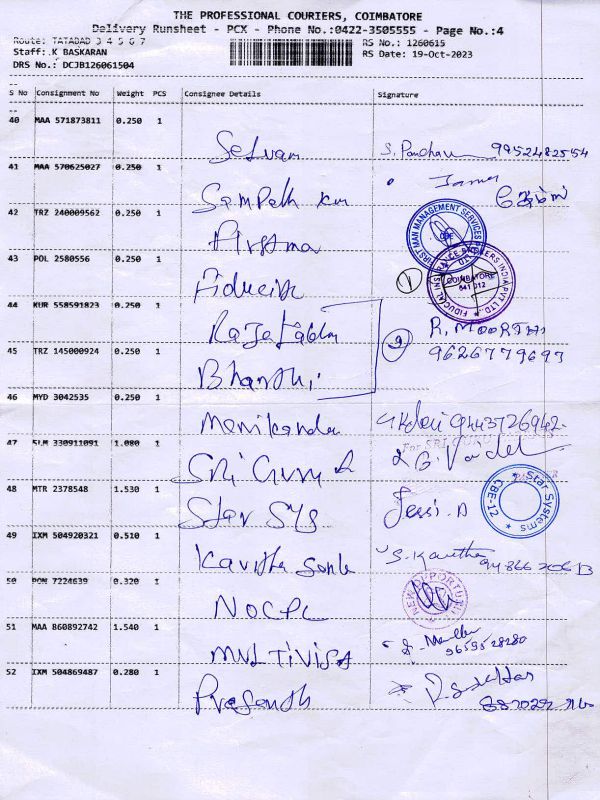 THE PROFESSIONAL COURIERS, COIMBATORE
Delivery Runsheet - PCX - Phone No.:0422-3505555 - Page No.:4
Route: TATABAD 3 4 5 6 7
Staff: K BASKARAN RS No.: 1260615
DRS No.: DCJB126061504 RS Date: 19-Oct-2023
S No Consignment No Weight PCS Consignee Details Signature
40 MAA 571873811 0.250 1
Selvam S. 9952482554
41 MAA 570625027 0.250 1
Sampath Km
42 TRZ 240009562 0.250 1
Firstma FIRST MAN MANAGEMENT SERVICES CBE
43 POL 2580556 0.250 1
Fiducia 1 COIMBATORE 641 012
44 KUR 558591823 0.250 1
Raja R. MOORTHI
45 TRZ 145000924 0.250 1
Bharathi 9 9626779693
46 MYD 3042535 0.250 1
Manikanda 9443726942
For SRI GURU
47 SLM 330911091 1.080 1
Sri Guru
48 MTR 2378548 1.530 1
Star Sys Jessi.A Star Systems CBE-12
49 IXM 504920321 0.510 1
Kavitha S. Kavitha
50 PON 7224639 0.320 1
NOCPL
51 MAA 860892742 1.540 1
MULTIVISTA 9659528280
52 IXM 504869487 0.280 1
Prasanth